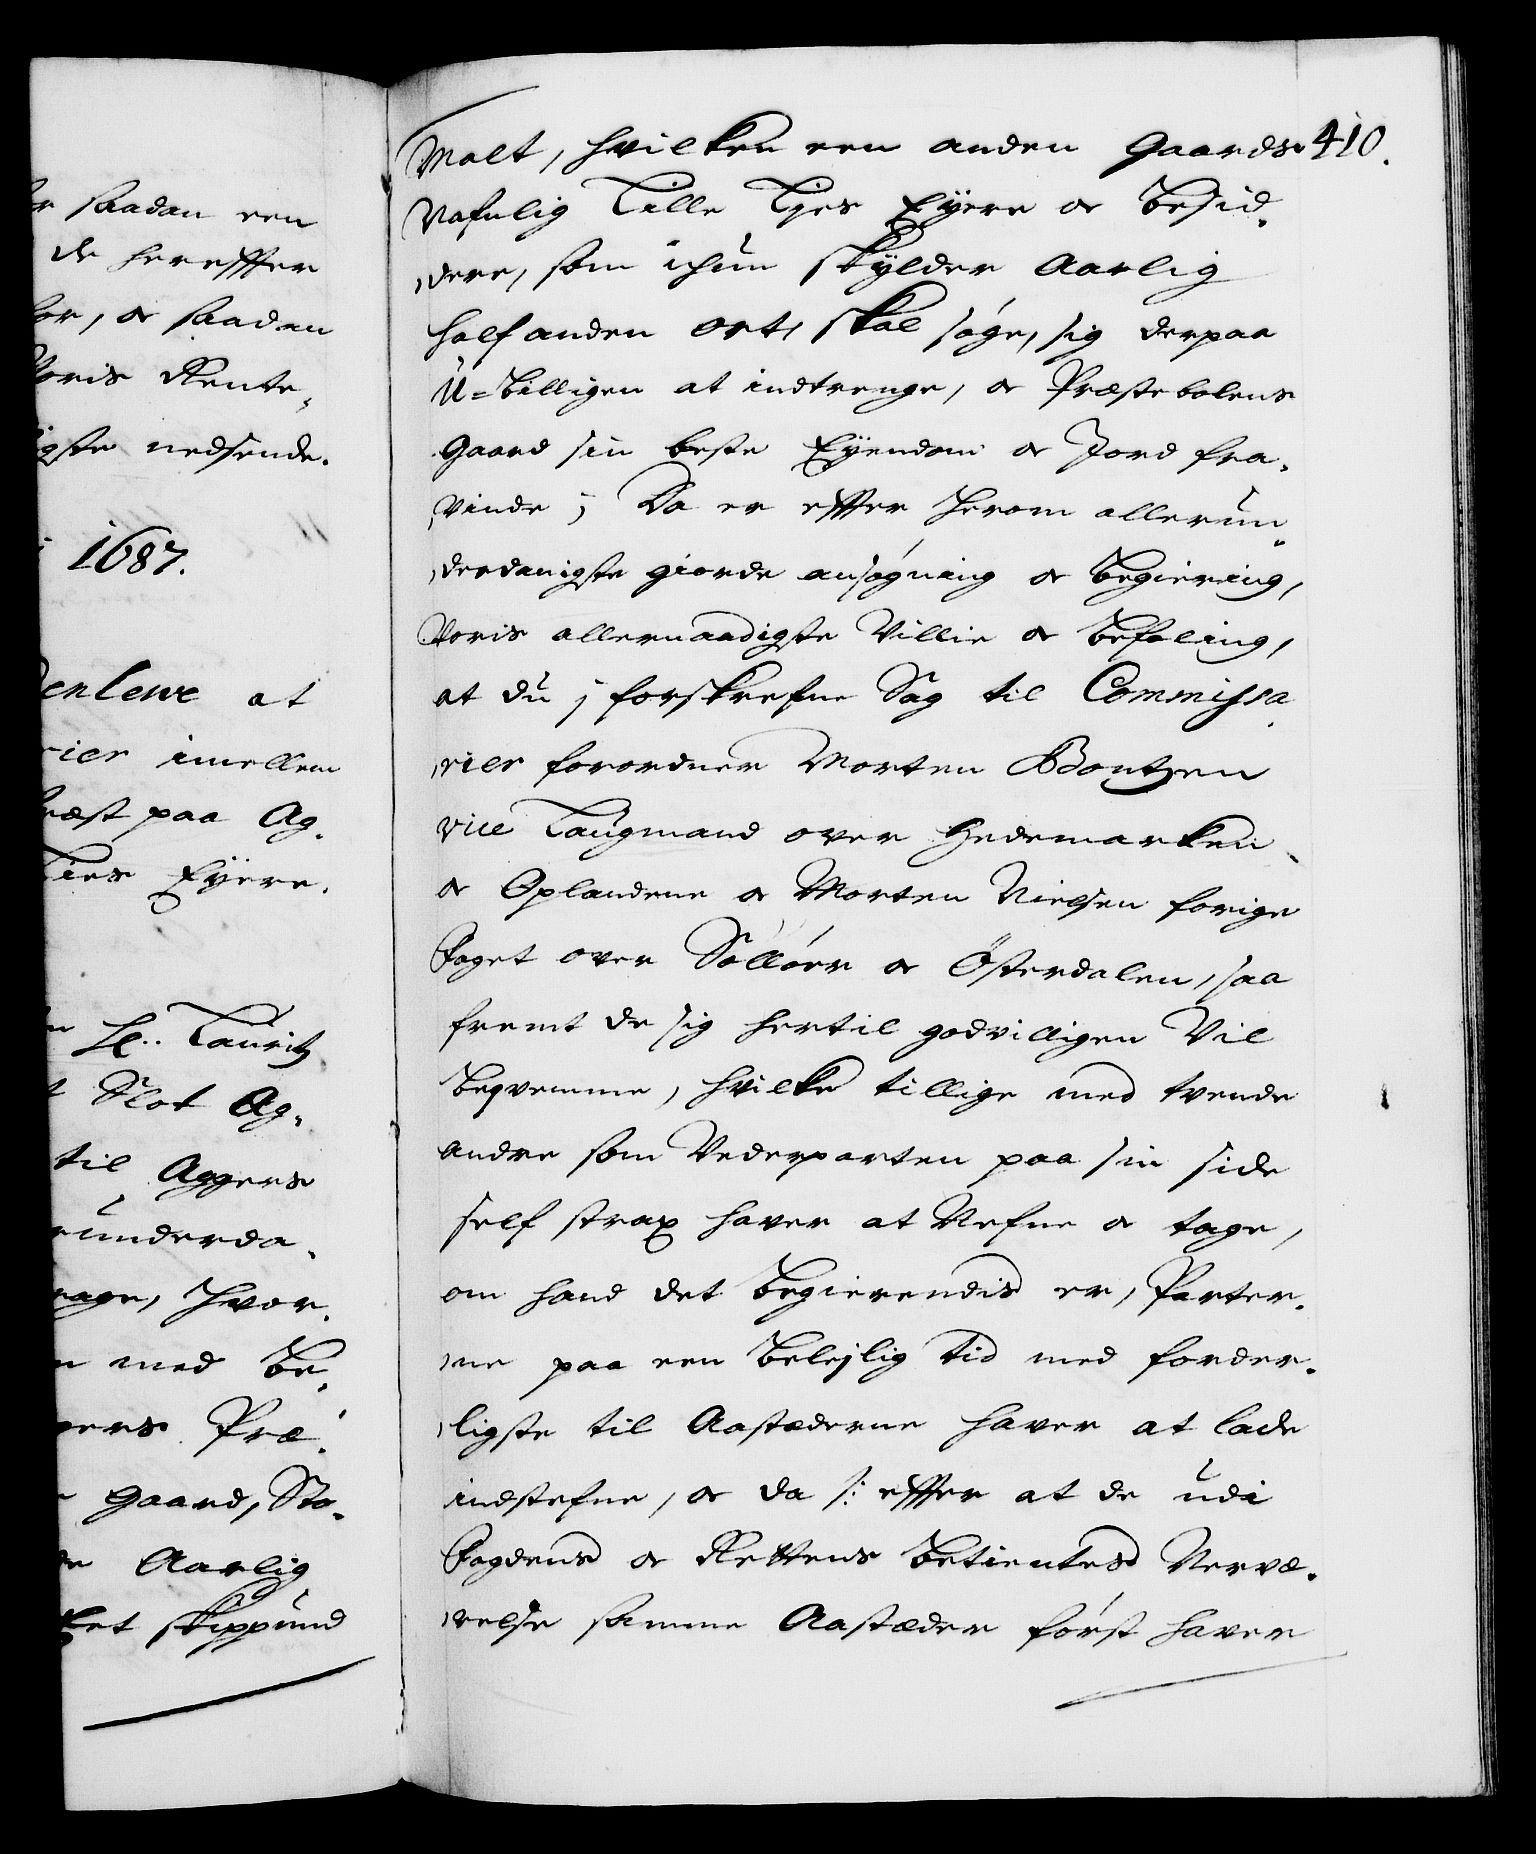 r saadan een
de hereffter
for, oc saadan
Voris Rente,,
igste nedsende.
i 1687.
denlewe at
rier imellem
ræst paa Ag,,
Ties Eÿere.
Hr. Lauritz
t Slot Ag,,
til Aggers
runderda,,
rage, hvor,,
n med Be,,
gers Præ,,
Gaard, Sto,,
de Aarlig
ket skippund
410.
Malt, hvilken een anden Gaards
Nafnlig Lille Tjes Eÿere oc besid,,
,,dere, som ichun skÿlder Aarlig
half anden ort, skal søge, sig derpaa
U=billigen at indtrenge, oc Præstebolens
Gaard sin beste Eÿendom oc Jord fra,,
,,vinde; Da er effter herom allerun,,
,,derdanigste giorde ansøgning oc begiering,
Voris allernaadigste Villie oc befaling,
at du j forskrefne Sag til Commissa,,
,,rier forordner Morten Bontzen
vice Laugmand over Hedemarken
oc Oplandene oc Morten Nielsen forige
Foget over Solløer oc Østerdalen, saa
fremt de sig hertil godvilligen Vil
beqvemme, hvilke tillige med tvende
andre som Vederparten paa sin side
self strax haver at Nefne oc tage,
om hand det begierendis er, Parter,,
,,ne paa een belejlig tid med forder,,
,,ligste til Aastæderne haver at lade
indstefne, oc da /: effter at de udi
Fogdens oc Rettens betientes Nervæ,,
,,relse samme Aastæder først haver